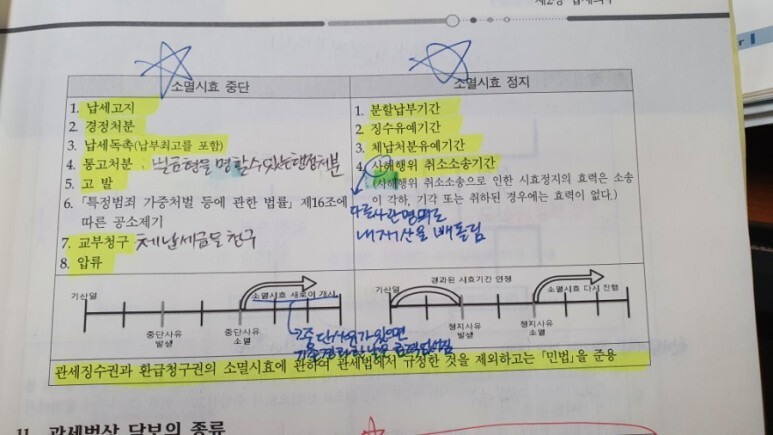 제2장 납세의무
소멸시효 중단
소멸시효 정지
1. 납세고지
2. 경정처분
3. 납세독촉(납부최고를 포함)
4. 통고처분 : 벌금형을 명할수있는행정처분
5. 고 발
6. 「특정범죄 가중처벌 등에 관한 법률」 제16조에
따른 공소제기
7. 교부청구 체납세금도 청구
8. 압류
1. 분할납부기간
2. 징수유예기간
3. 체납처분유예기간
4. 사해행위 취소소송기간
(사해행위 취소소송으로 인한 시효정지의 효력은 소송
이 각하, 기각 또는 취하된 경우에는 효력이 없다.)
다른사람명의로
내재산을 빼돌림
기산일
소멸시효 새로이 개시
중단사유
발생
중단사유
소멸
중단사유가있으면
기산일
경과된 시효기간 연정
소멸시효 다시 진행
정지사유
발생
정지사유
소멸
관세징수권과 환급청구권의 소멸시효에 관하여 관세법에서 규정한 것을 제외하고는 「민법」을 준용
11 관세법상 담보의 종류